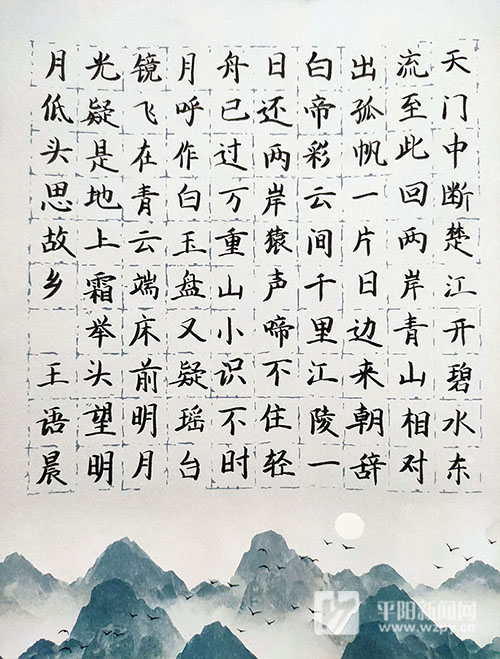 天门中断楚江开碧水东
流至此回两岸青山相对
出孤帆一片日边来朝辞
白帝彩云间千里江陵一
日还两岸猿声啼不住轻
舟已过万重山小识不时
月呼作白玉盘又疑瑶台
镜飞在青云端床前明月
光疑是地上霜举头望明
月低头思故乡 王语晨
平阳新闻网
www.wzpy.cn